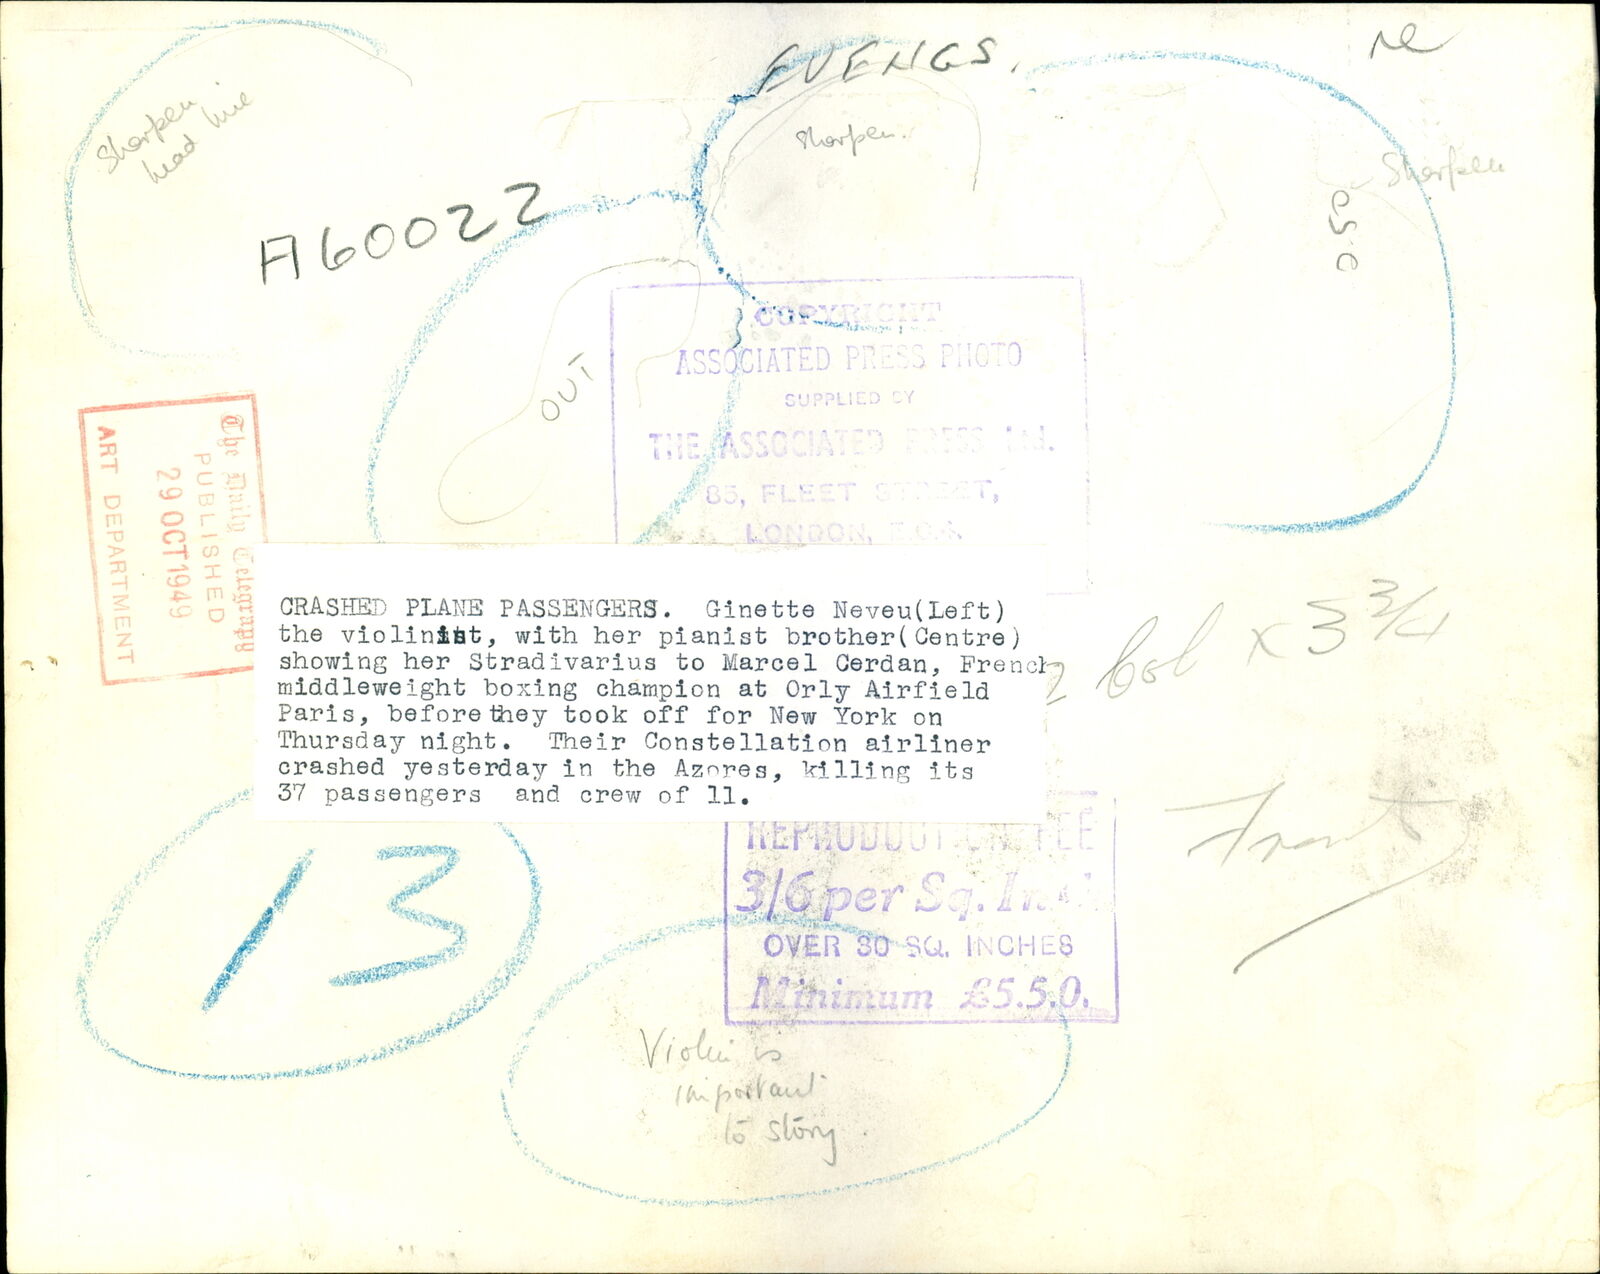 EVENGS.
Sharpen
head line
Sharpen.
Sharpen
A60022
OUT
COPYRIGHT
ASSOCIATED PRESS PHOTO
SUPPLIED BY
THE ASSOCIATED PRESS Ltd.
85, FLEET STREET,
LONDON, E.C.4.
The Daily Telegraph
PUBLISHED
29 OCT 1949
ART DEPARTMENT
CRASHED PLANE PASSENGERS. Ginette Neveu(Left)
the violinist, with her pianist brother(Centre)
showing her Stradivarius to Marcel Cerdan, French
middleweight boxing champion at Orly Airfield
Paris, before they took off for New York on
Thursday night. Their Constellation airliner
crashed yesterday in the Azores, killing its
37 passengers and crew of 11.
2 col x 3 3/4
Front
13
REPRODUCTION FEE
3/6 per Sq. Inch
OVER 30 SQ. INCHES
Minimum £5.5.0.
Violin is
important
to story.